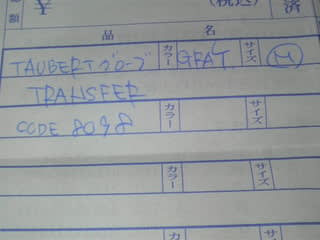 額 ¥ (税込) 済
品 名
TAUBERT グローブ カラー GFAT サイズ M
TRANSFER
CODE 8098 カラー サイズ
カラー サイズ
カラー サイズ